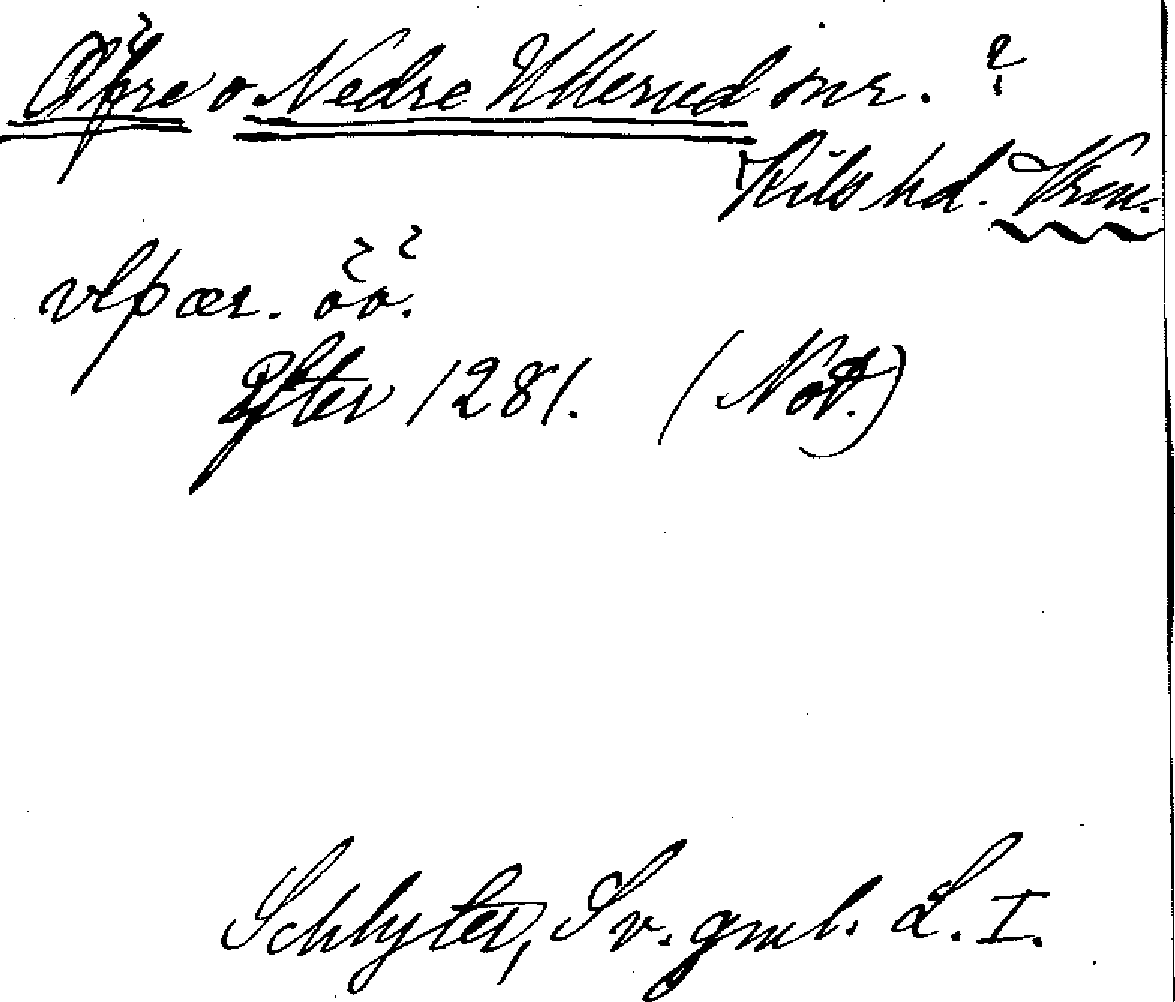 Öfre o Nedre Ullerud snr. ?
Kils hd. Vrm.
vlþær. öö.
Efter 1281. (Not.)
Schlyter, Sv. gml. L. I.